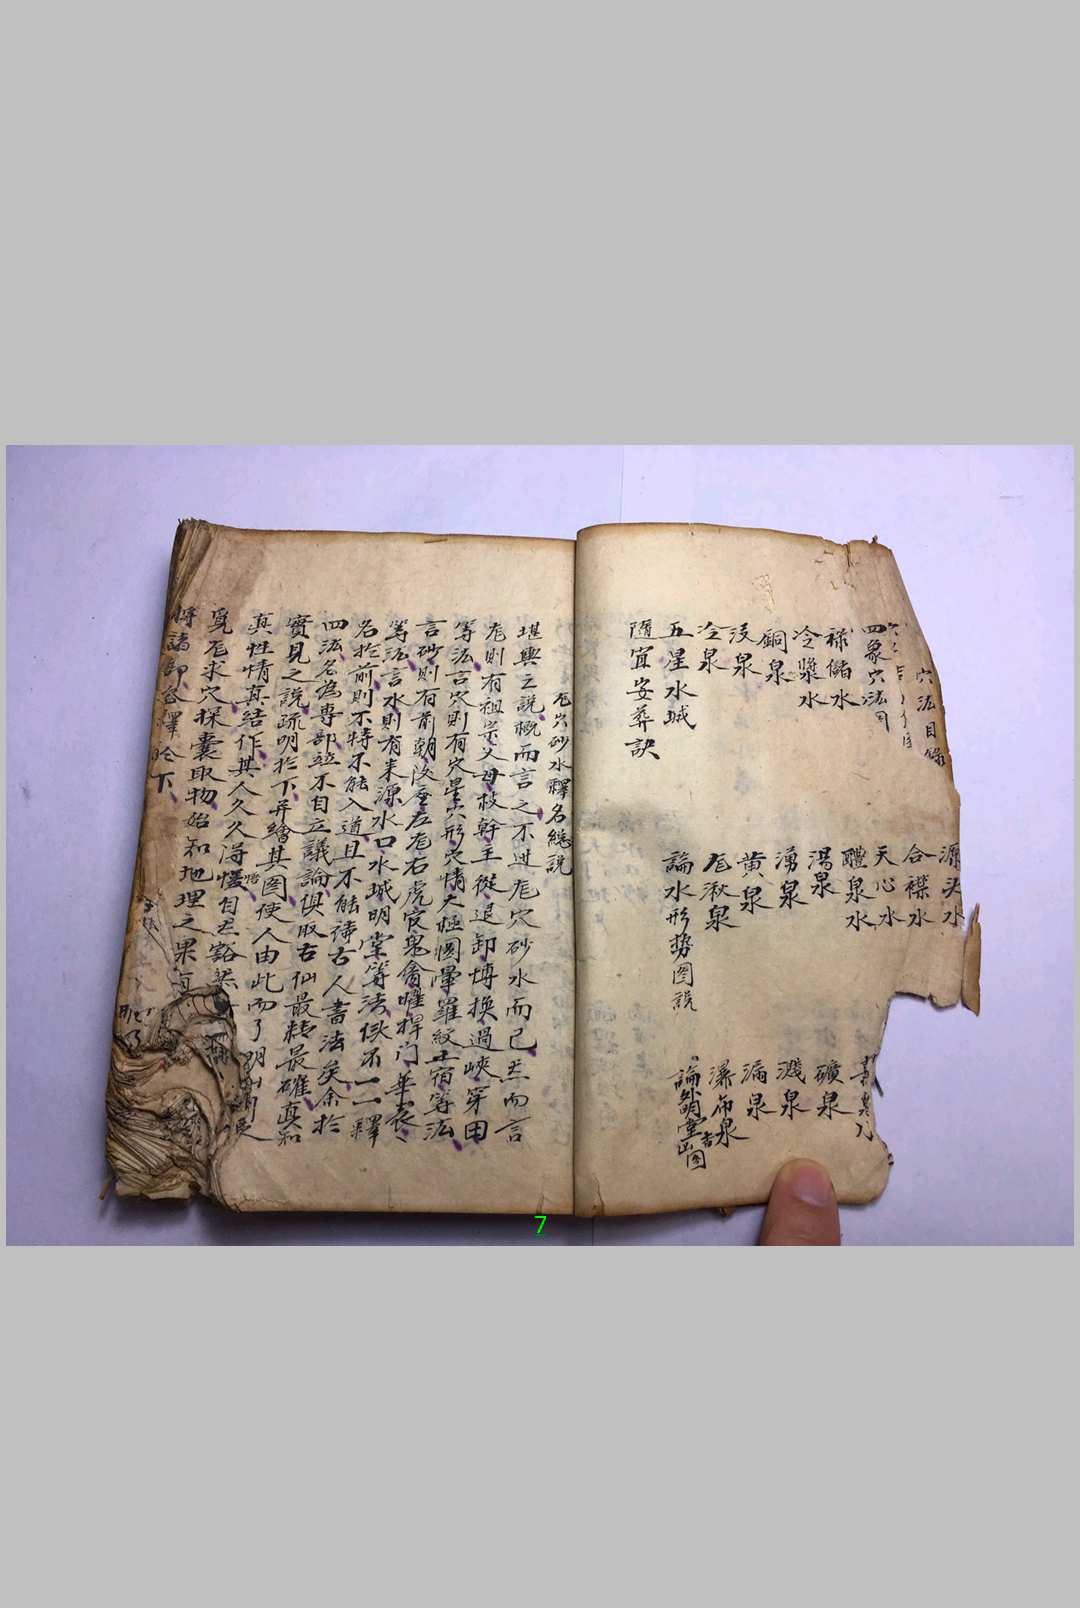 穴法目錄
四象穴法
源头水
合襟水
天心水
醴泉水
湯泉
湧泉
黄泉
龙湫泉
論水形势图説
祿儲水
冷漿水
銅泉
没泉
冷泉
五星水城
隨宜安葬訣
礦泉
濺泉
漏泉
瀑布泉
論明堂吉凶图
龙穴砂水釋名總説
堪輿之説概而言之不过龙穴砂水而已言而言
龙則有祖宗父母枝幹主從退卸博換過峽穿田
等法言穴則有穴星穴形穴情太極圈暈羅紋土宿等法
言砂則有前朝後座左龙右虎官鬼禽曜捍门華表
等法言水則有来源水口水城明堂等法俱不一一釋
名於前則不特不能入道且不能读古人書法矣余於
四法名為專部並不自立議論俱取古仙最精最確真知
實見之説疏明於下并繪其图使人由此而了明
真性情真結作其人久久得悟自然豁然
覓龙求穴探囊取物始知地理之果有
將諸部台釋於下
7